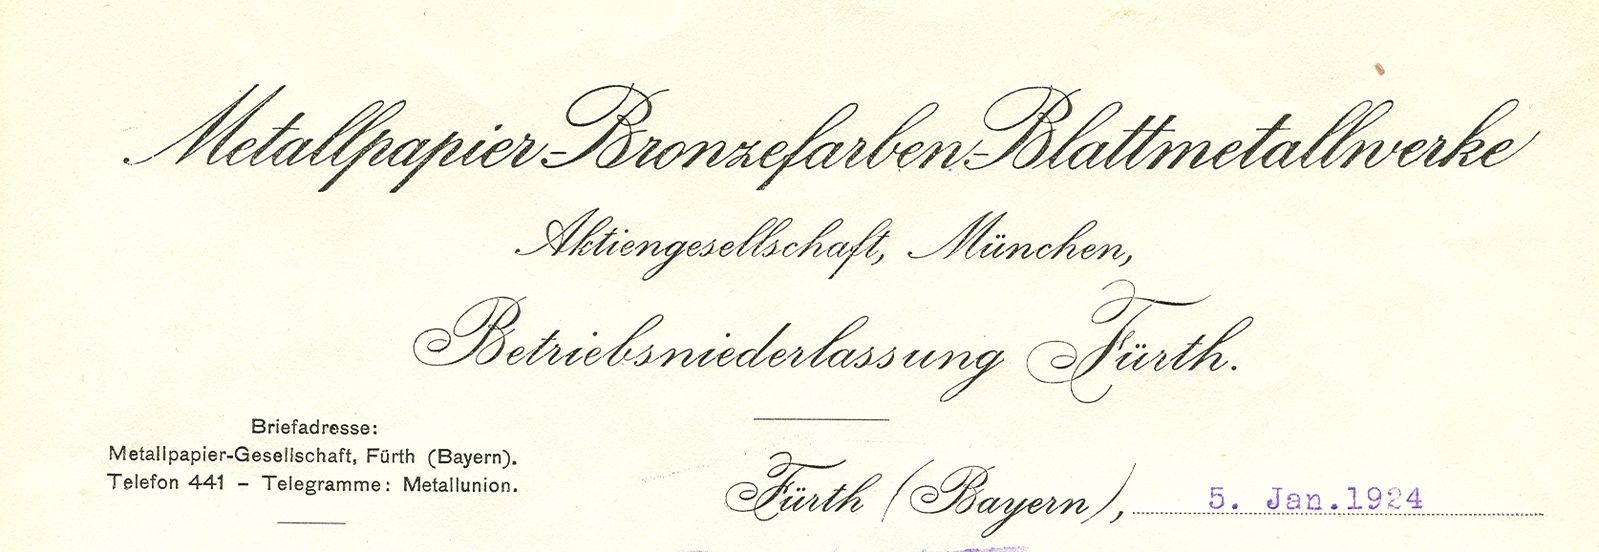 Metallpapier-Bronzefarben-Blattmetallwerke
Aktiengesellschaft, München,
Betriebsniederlassung Fürth.
Briefadresse:
Metallpapier-Gesellschaft, Fürth (Bayern).
Telefon 441 – Telegramme: Metallunion.
Fürth (Bayern), 5. Jan.1924